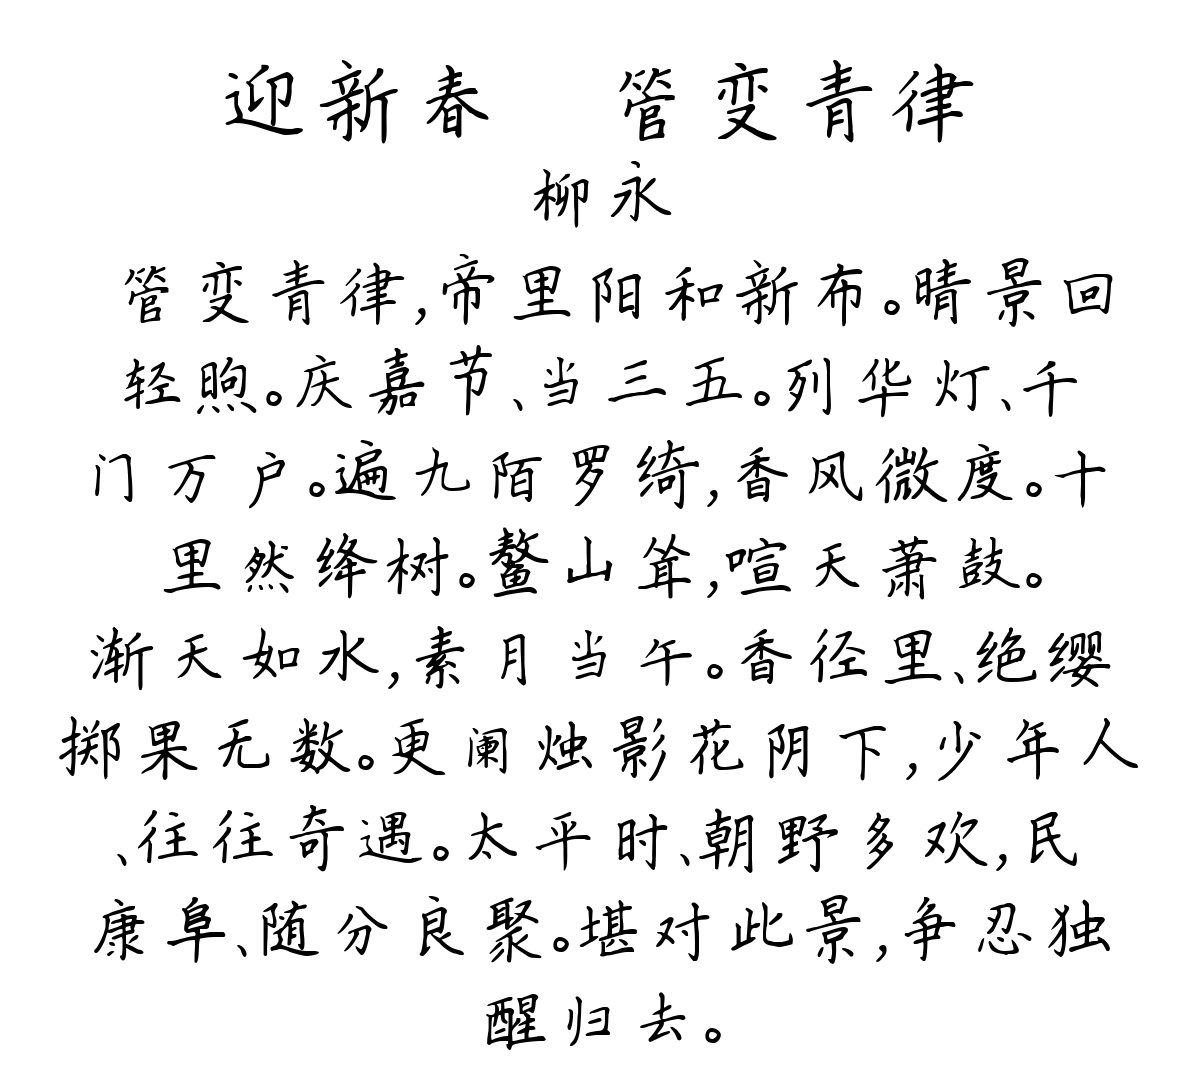 迎新春　管变青律
柳永
管变青律,帝里阳和新布。晴景回
轻煦。庆嘉节、当三五。列华灯、千
门万户。遍九陌罗绮,香风微度。十
里然绛树。鳌山耸,喧天萧鼓。
渐天如水,素月当午。香径里、绝缨
掷果无数。更阑烛影花阴下,少年人
、往往奇遇。太平时、朝野多欢,民
康阜、随分良聚。堪对此景,争忍独
醒归去。